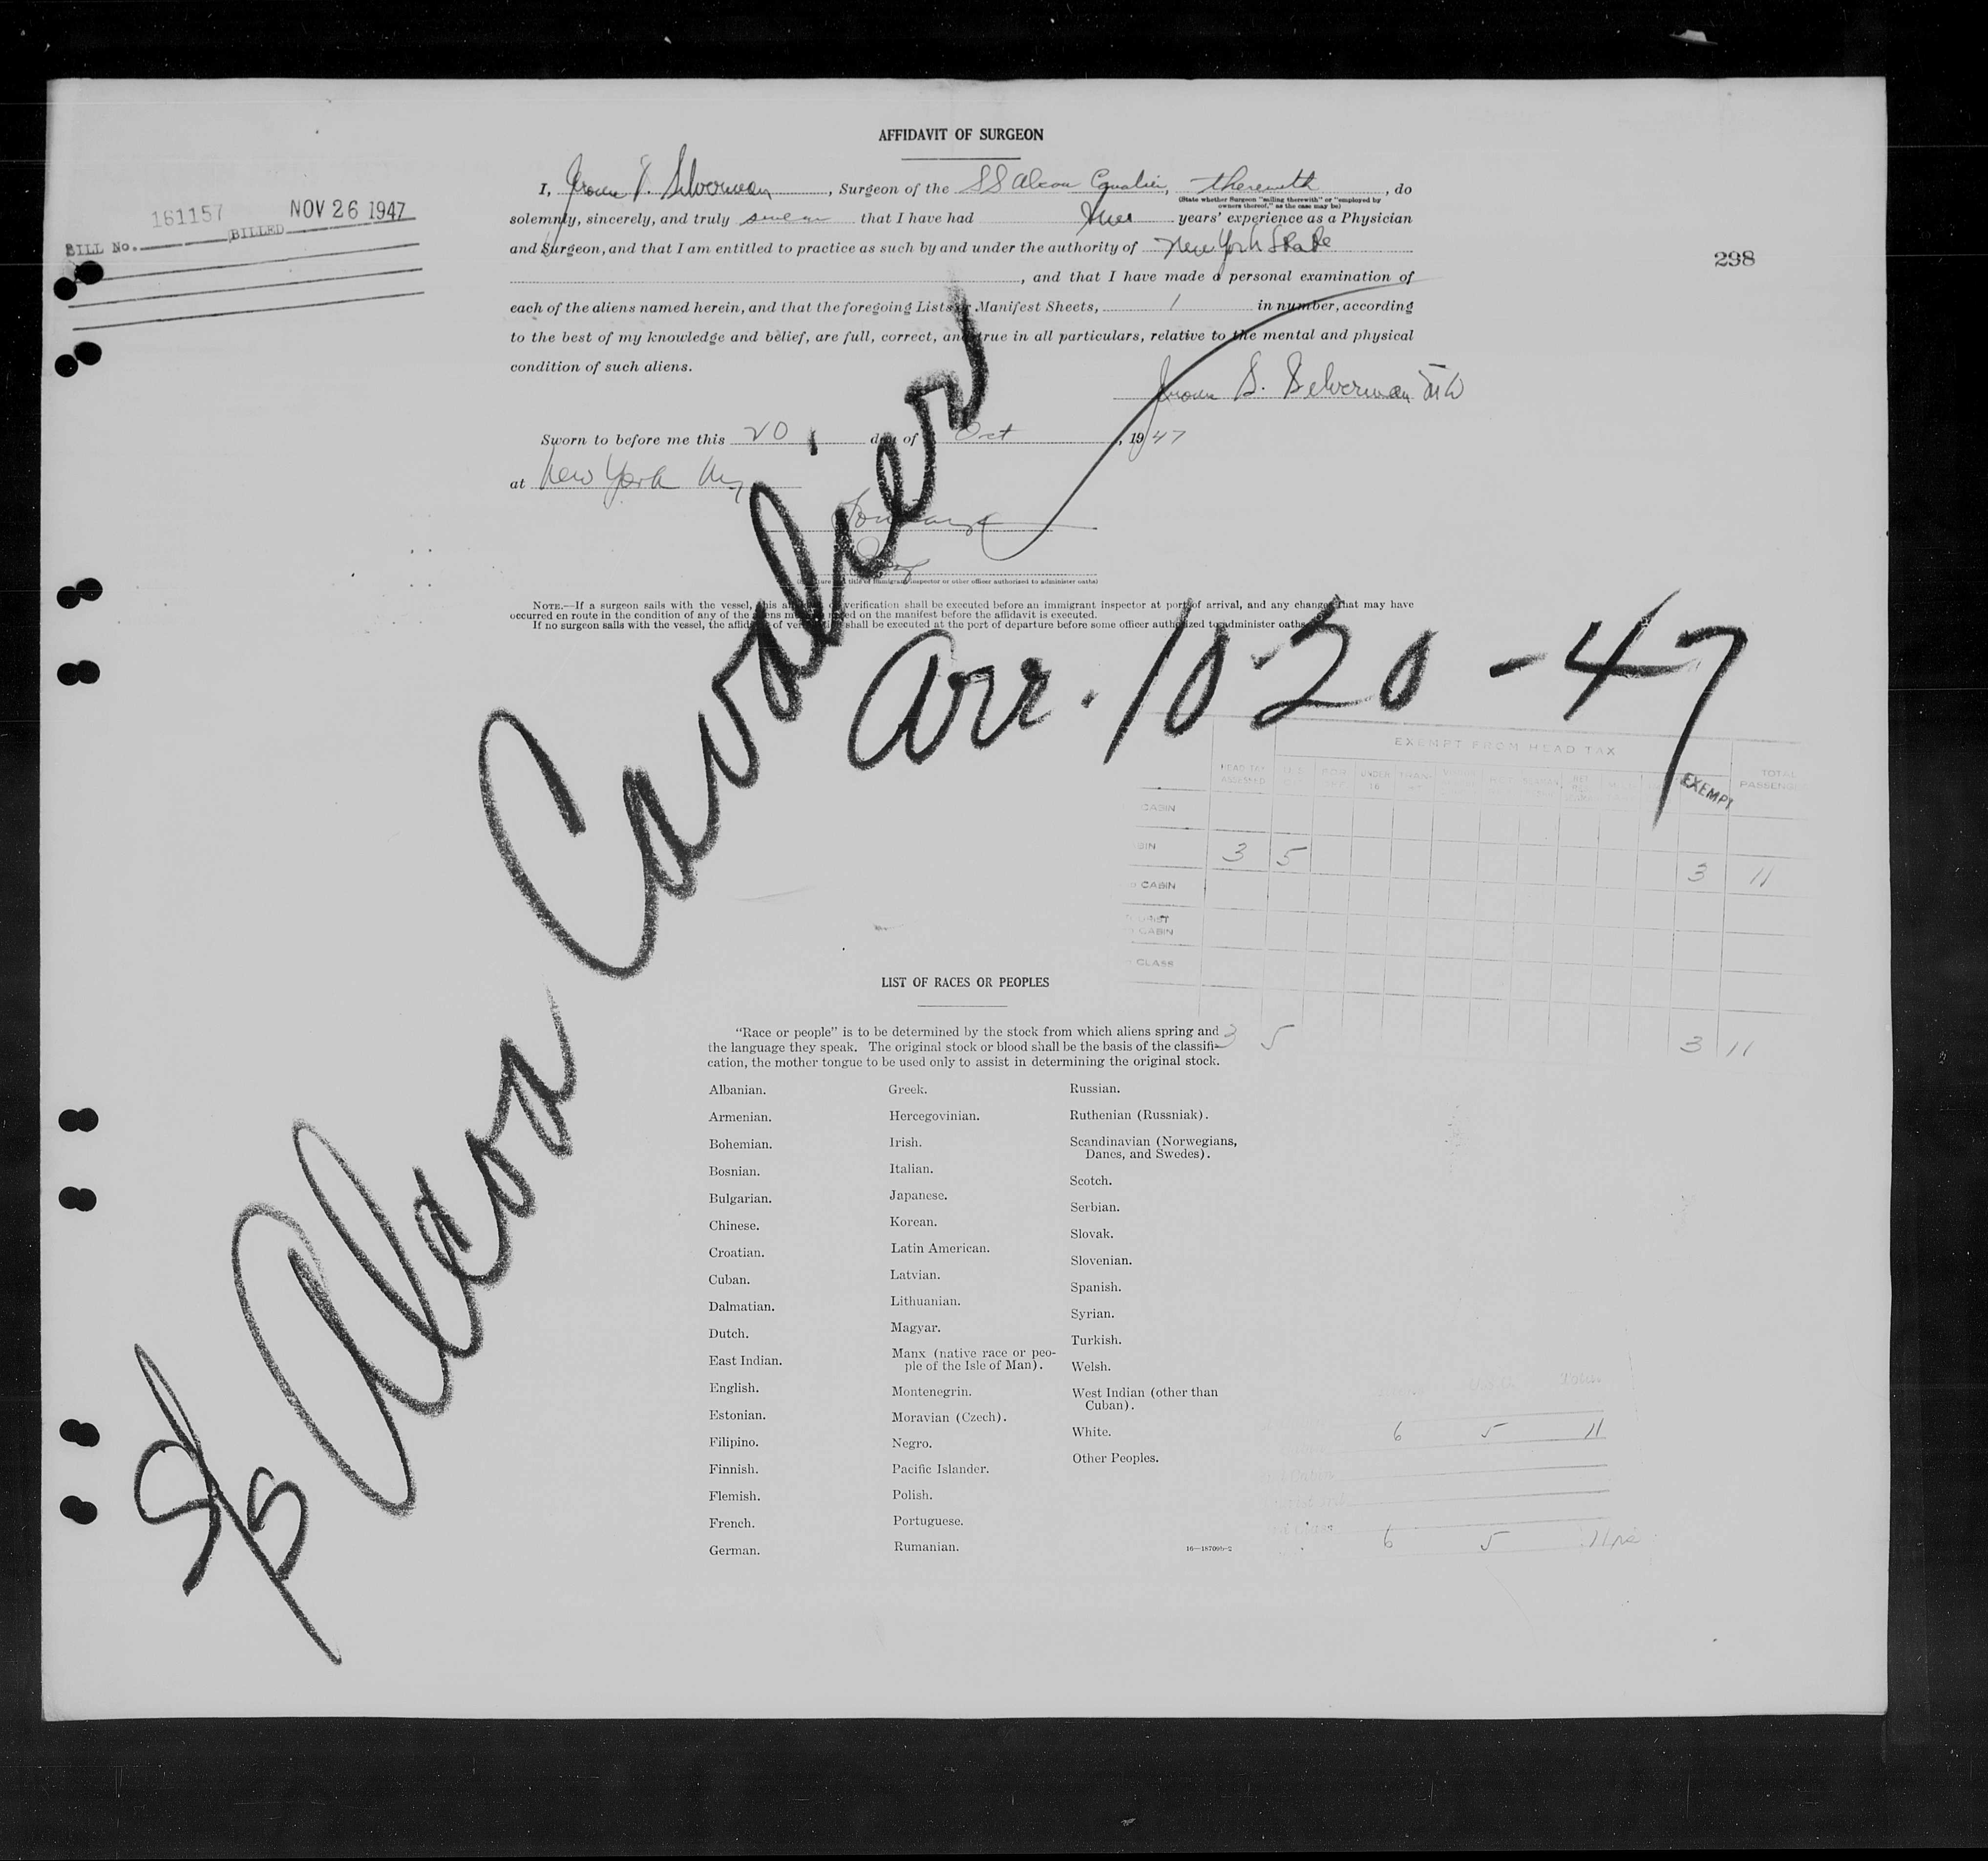 AFFIDAVIT OF SURGEON
I, Silverman, Surgeon of the SS Alcoa Cavalier, therewith, do
(State whether Surgeon "sailing therewith" or "employed by
owners thereof," as the case may be)
solemnly, sincerely, and truly swear that I have had years' experience as a Physician
and Surgeon, and that I am entitled to practice as such by and under the authority of New York State
, and that I have made a personal examination of
each of the aliens named herein, and that the foregoing Lists or Manifest Sheets, 1 in number, according
to the best of my knowledge and belief, are full, correct, and true in all particulars, relative to the mental and physical
condition of such aliens.
S. Silverman MD
Sworn to before me this 20 day of Oct, 1947
at New York NY
(Signature and title of immigrant inspector or other officer authorized to administer oaths)
161157 NOV 26 1947
BILL No. BILLED
298
NOTE.—If a surgeon sails with the vessel, this affidavit of verification shall be executed before an immigrant inspector at port of arrival, and any changes that may have
occurred en route in the condition of any of the aliens must be noted on the manifest before the affidavit is executed.
If no surgeon sails with the vessel, the affidavit of verification shall be executed at the port of departure before some officer authorized to administer oaths.
S/S Alcoa Cavalier
arr. 10-20-47
EXEMPT FROM HEAD TAX
HEAD TAX ASSESSED UNDER 16 EXEMPT TOTAL
CABIN
3 5 3 11
CABIN
CABIN
CLASS
3 5 3 11
LIST OF RACES OR PEOPLES
"Race or people" is to be determined by the stock from which aliens spring and
the language they speak. The original stock or blood shall be the basis of the classifi-
cation, the mother tongue to be used only to assist in determining the original stock.
Albanian.
Armenian.
Bohemian.
Bosnian.
Bulgarian.
Chinese.
Croatian.
Cuban.
Dalmatian.
Dutch.
East Indian.
English.
Estonian.
Filipino.
Finnish.
Flemish.
French.
German.
Greek.
Hercegovinian.
Irish.
Italian.
Japanese.
Korean.
Latin American.
Latvian.
Lithuanian.
Magyar.
Manx (native race or peo-
ple of the Isle of Man).
Montenegrin.
Moravian (Czech).
Negro.
Pacific Islander.
Polish.
Portuguese.
Rumanian.
Russian.
Ruthenian (Russniak).
Scandinavian (Norwegians,
Danes, and Swedes).
Scotch.
Serbian.
Slovak.
Slovenian.
Spanish.
Syrian.
Turkish.
Welsh.
West Indian (other than
Cuban).
White.
Other Peoples.
16—18709b-2
6 5 11
6 5 11